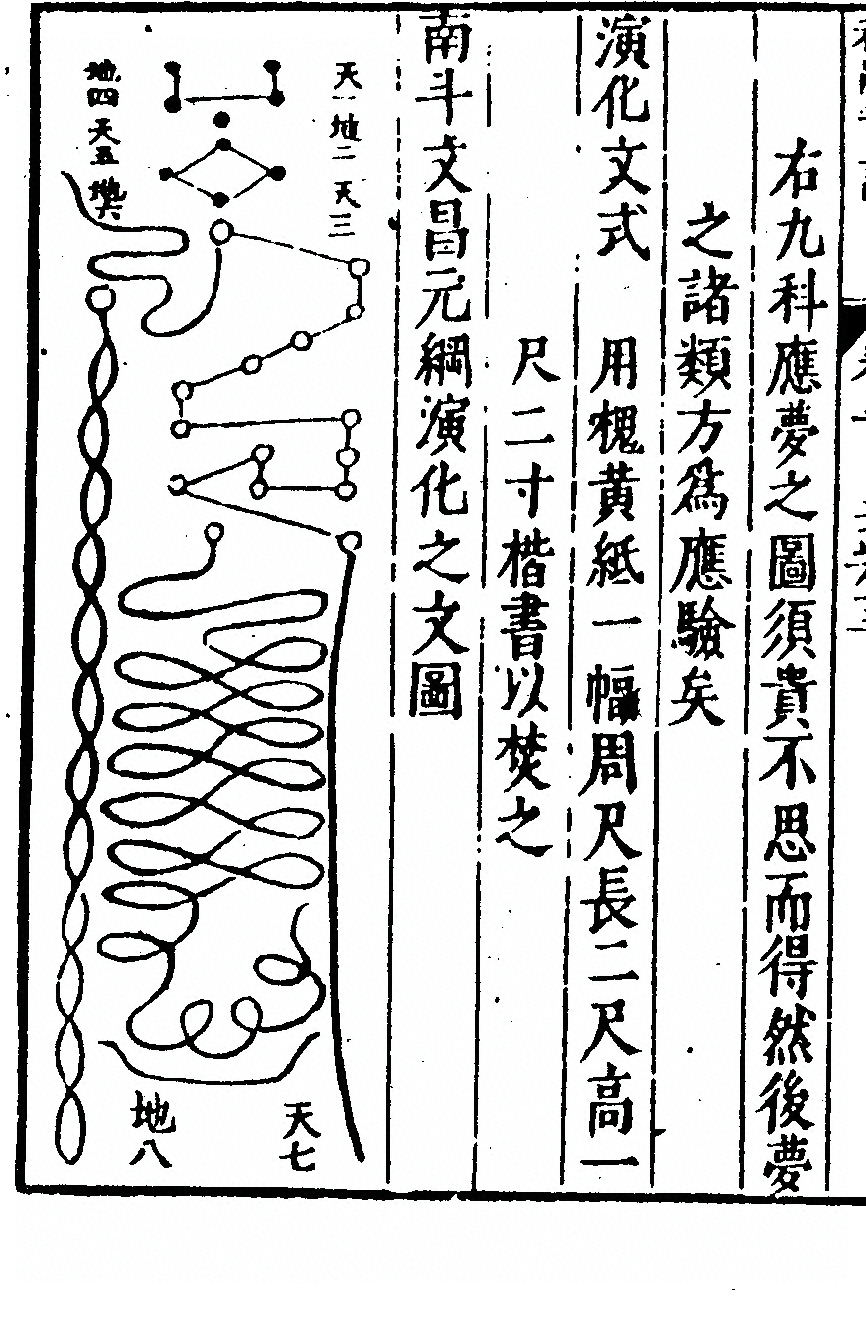 右九科應夢之圖須貴不思而得然後夢
之諸類方為應驗矣
演化文式　用槐黃紙一幅周尺長二尺高一
尺二寸楷書以焚之
南斗文昌元綱演化之文圖
天一地二天三
地四天五地六
天七
地八